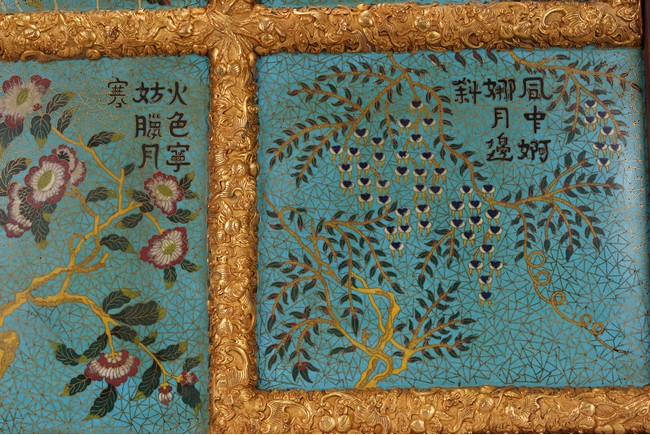 風中婀
娜月邊
斜
火色寧
姑臘月
寒